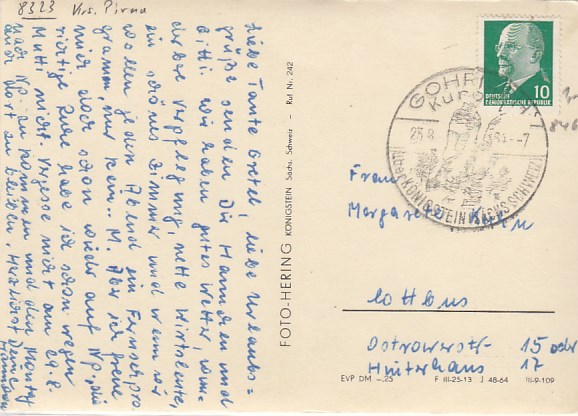 8323 Krs. Pirna
Liebe Tante Gretel! Liebe Urlaubs=
grüße senden Dir Hannchen und
Bitti. Wir haben gutes Wetter, wun-
derbare Verpflegung, nette Wirtsleute,
ein schönes Zimmer und wenn wir
wollen jeden Abend ein Fernsehpro
gramm,
mich doch schon wieder auf Np., die
richtige Ruhe habe ich schon wegen
Mutti nicht. Vergesse nicht am 29.8.
nach Np. zu kommen und den Montag
dort zu bleiben. Herzlichst Deine
Hannchen
FOTO-HERING KÖNIGSTEIN Sächs. Schweiz - Ruf Nr. 242
DEUTSCHE
DEMOKRATISCHE REPUBLIK
10
GOHRISCH
Kurort
25.8. -7
über KÖNIGSTEIN (SÄCHS. SCHWEIZ)
Frau
Margarete
Cottbus
Ostrowerstr. 15 oder
Hinterhaus 17
EVP DM -.25 F III-25-13 J 48-64 III-9-109